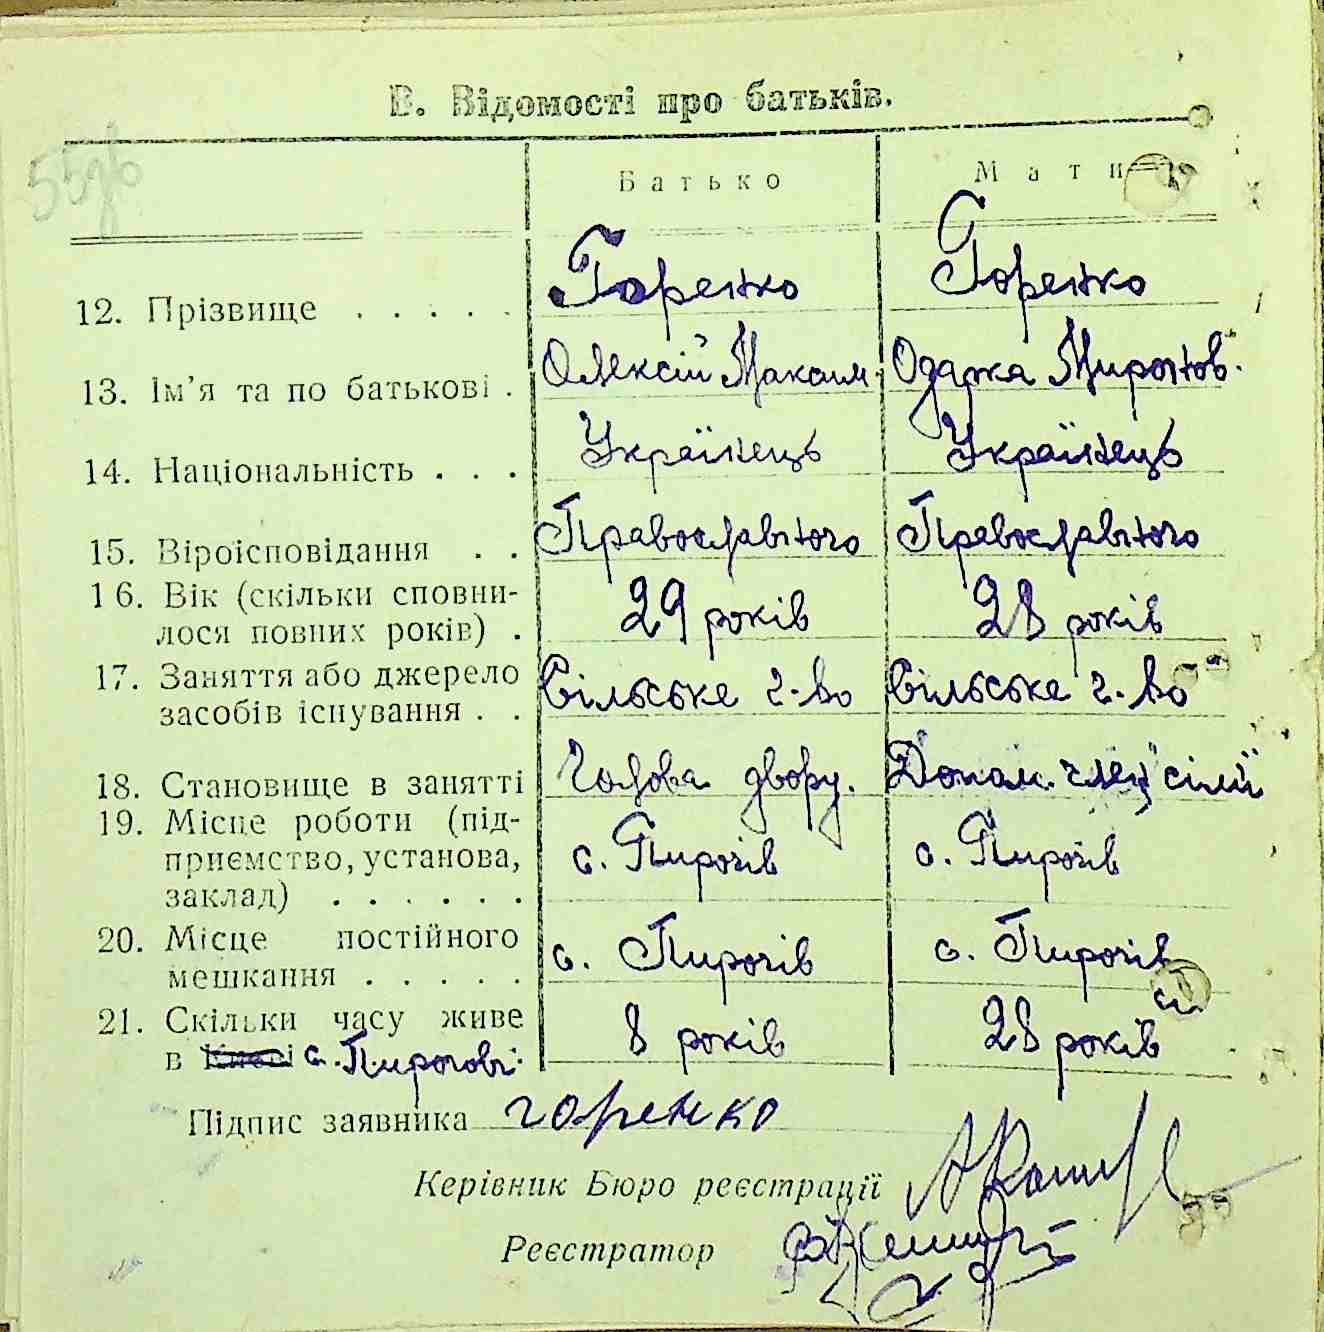 В. Відомості про батьків.
Батько Мати
12. Прізвище . . . . . Горенко Горенко
13. Ім'я та по батькові . Олексій Максим. Одарка Миронов.
14. Національність . . . Українець Українець
15. Віроісповідання . . Православного Православного
16. Вік (скільки сповни-
лося повних років) . 29 років 28 років
17. Заняття або джерело
засобів існування . . Сільське г-во Сільське г-во
18. Становище в занятті Голова двору. Допом. член сімї
19. Місце роботи (під-
приємство, установа,
заклад) . . . . . . с. Пирогів с. Пирогів
20. Місце постійного
мешкання . . . . . с. Пирогів с. Пирогів
21. Скільки часу живе
в Києві с. Пирогові 8 років 28 років
Підпис заявника горенко
Керівник Бюро реєстрації
Реєстратор